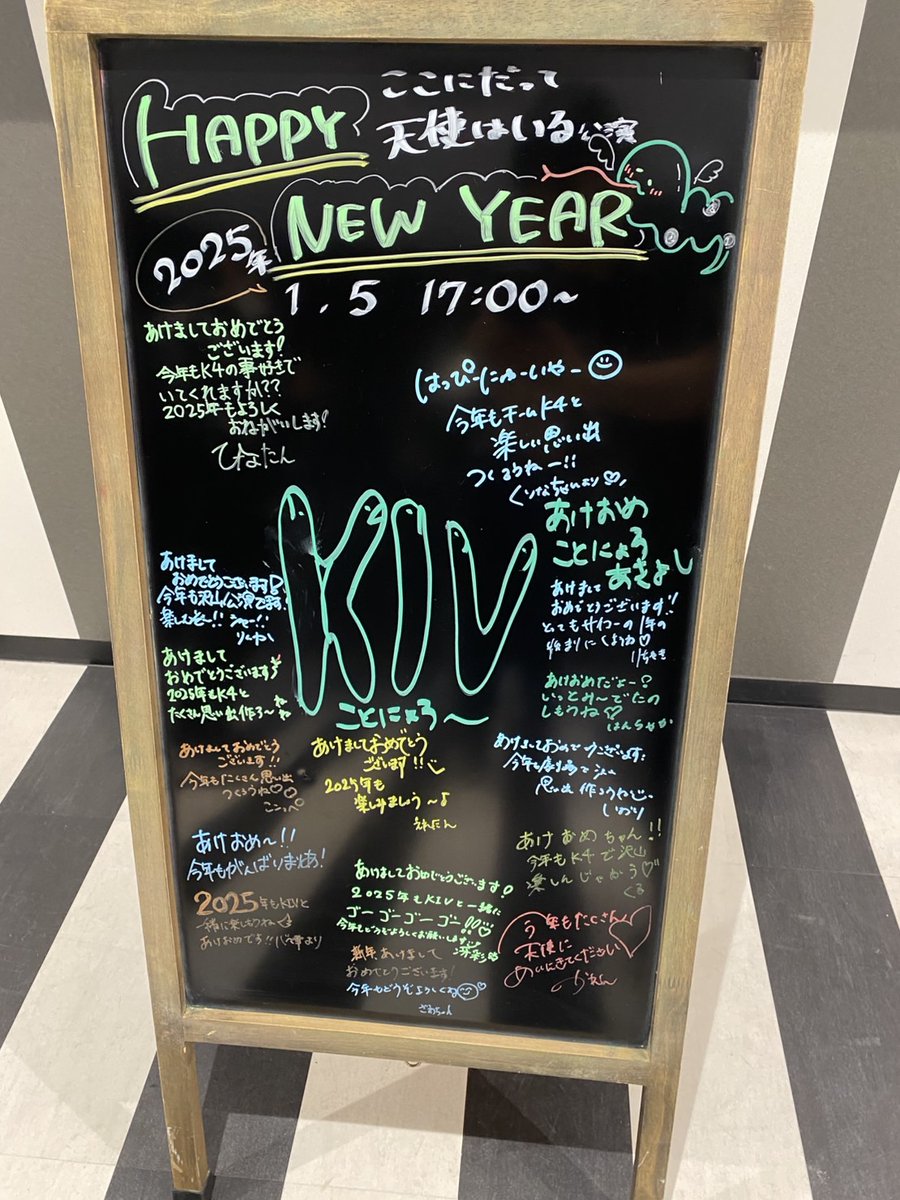 HAPPY
ここにだって
天使はいる公演
NEW YEAR
2025年
1.5 17:00~
あけましておめでとう
ございます!
今年もK4の事好きで
いてくれますか??
2025年もよろしく
おねがいします!
ひなたん
はっぴーにゅーいやー
今年もチームK4と
楽しい思い出
つくろうねー!!
あけおめ
ことにょろ
あきよし
KIV
ことにょろ〜
あけまして
おめでとうございます
今年も沢山公演でます
あけまして
おめでとうございます!!
あけまして
おめでとうございます
2025年もK4と
たくさん思い出作ろ〜
あけおめだよー
あけましておめでとう
ございます!!
今年もたくさん思い出
つくろうね♡
あけましておめでとう
ございます!!
2025年も
楽しみましょう〜♪
えれたん
あけましておめでとうございます
今年も劇場で
思い出作ろうね
いのり
あけおめ〜!!
今年もがんばりますね!
あけおめちゃん!!
今年もK4で沢山
楽しんじゃおう♡
くる
2025年もKIVと
一緒に楽しもうね
あけましておめでとうございます!
2025年もKIVと一緒に
ゴーゴーゴーゴー!!
今年もどうぞよろしくお願いします
今年もたくさん
天使に
あいにきてください
新年あけまして
おめでとうございます!
今年もどうぞよろしくね